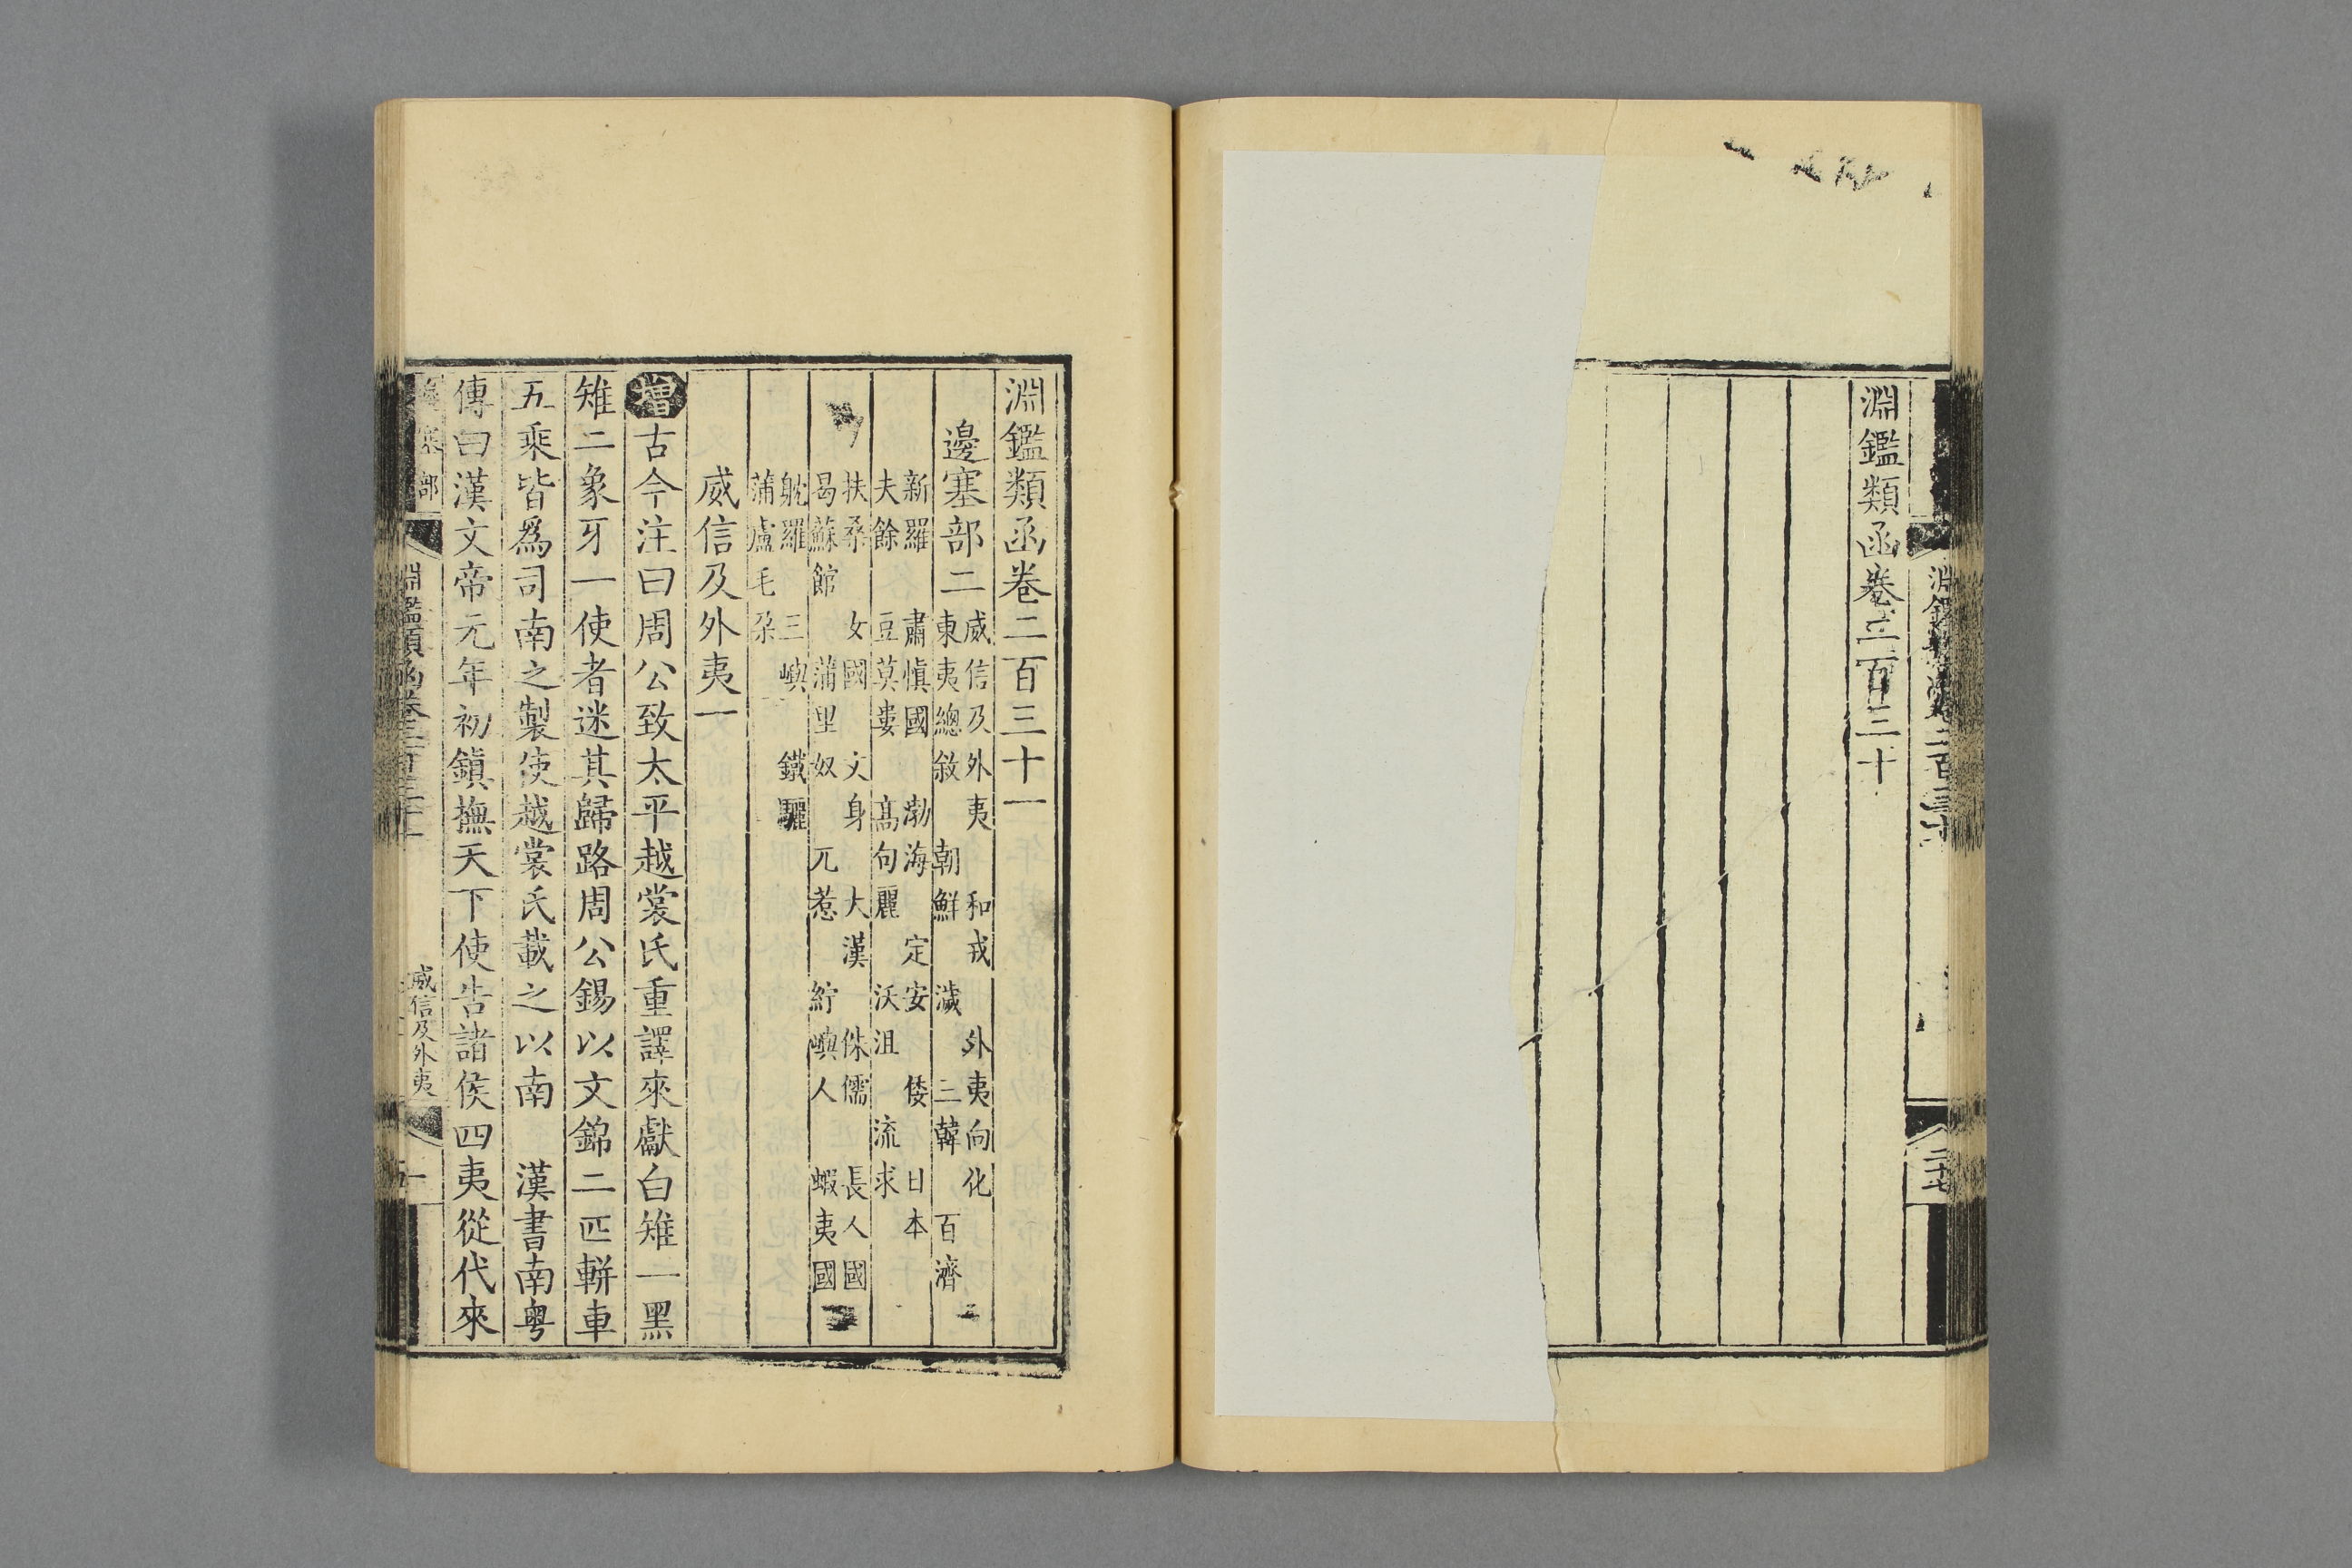 淵鑑類函卷二百三十
二十七
淵鑑類函卷二百三十一
邊塞部二
威信及外夷 和戎 外夷向化
東夷總敘 朝鮮 濊 三韓 百濟
新羅 肅慎國 渤海 定安 倭 日本
夫餘 豆莫婁 高句麗 沃沮 流求
扶桑 女國 文身 大漢 侏儒 長人國
曷蘇館 蒲里奴 兀惹 紵嶼人 蝦夷國
躭羅 三嶼 鐵驪
蒲盧毛朶
威信及外夷一
增古今注曰周公致太平越裳氏重譯來獻白雉一黑
雉二象牙一使者迷其歸路周公錫以文錦二匹輧車
五乘皆爲司南之製使越裳氏載之以南 漢書南粤
傳曰漢文帝元年初鎮撫天下使告諸侯四夷從代來
淵鑑類函卷二百三十一
威信及外夷
一